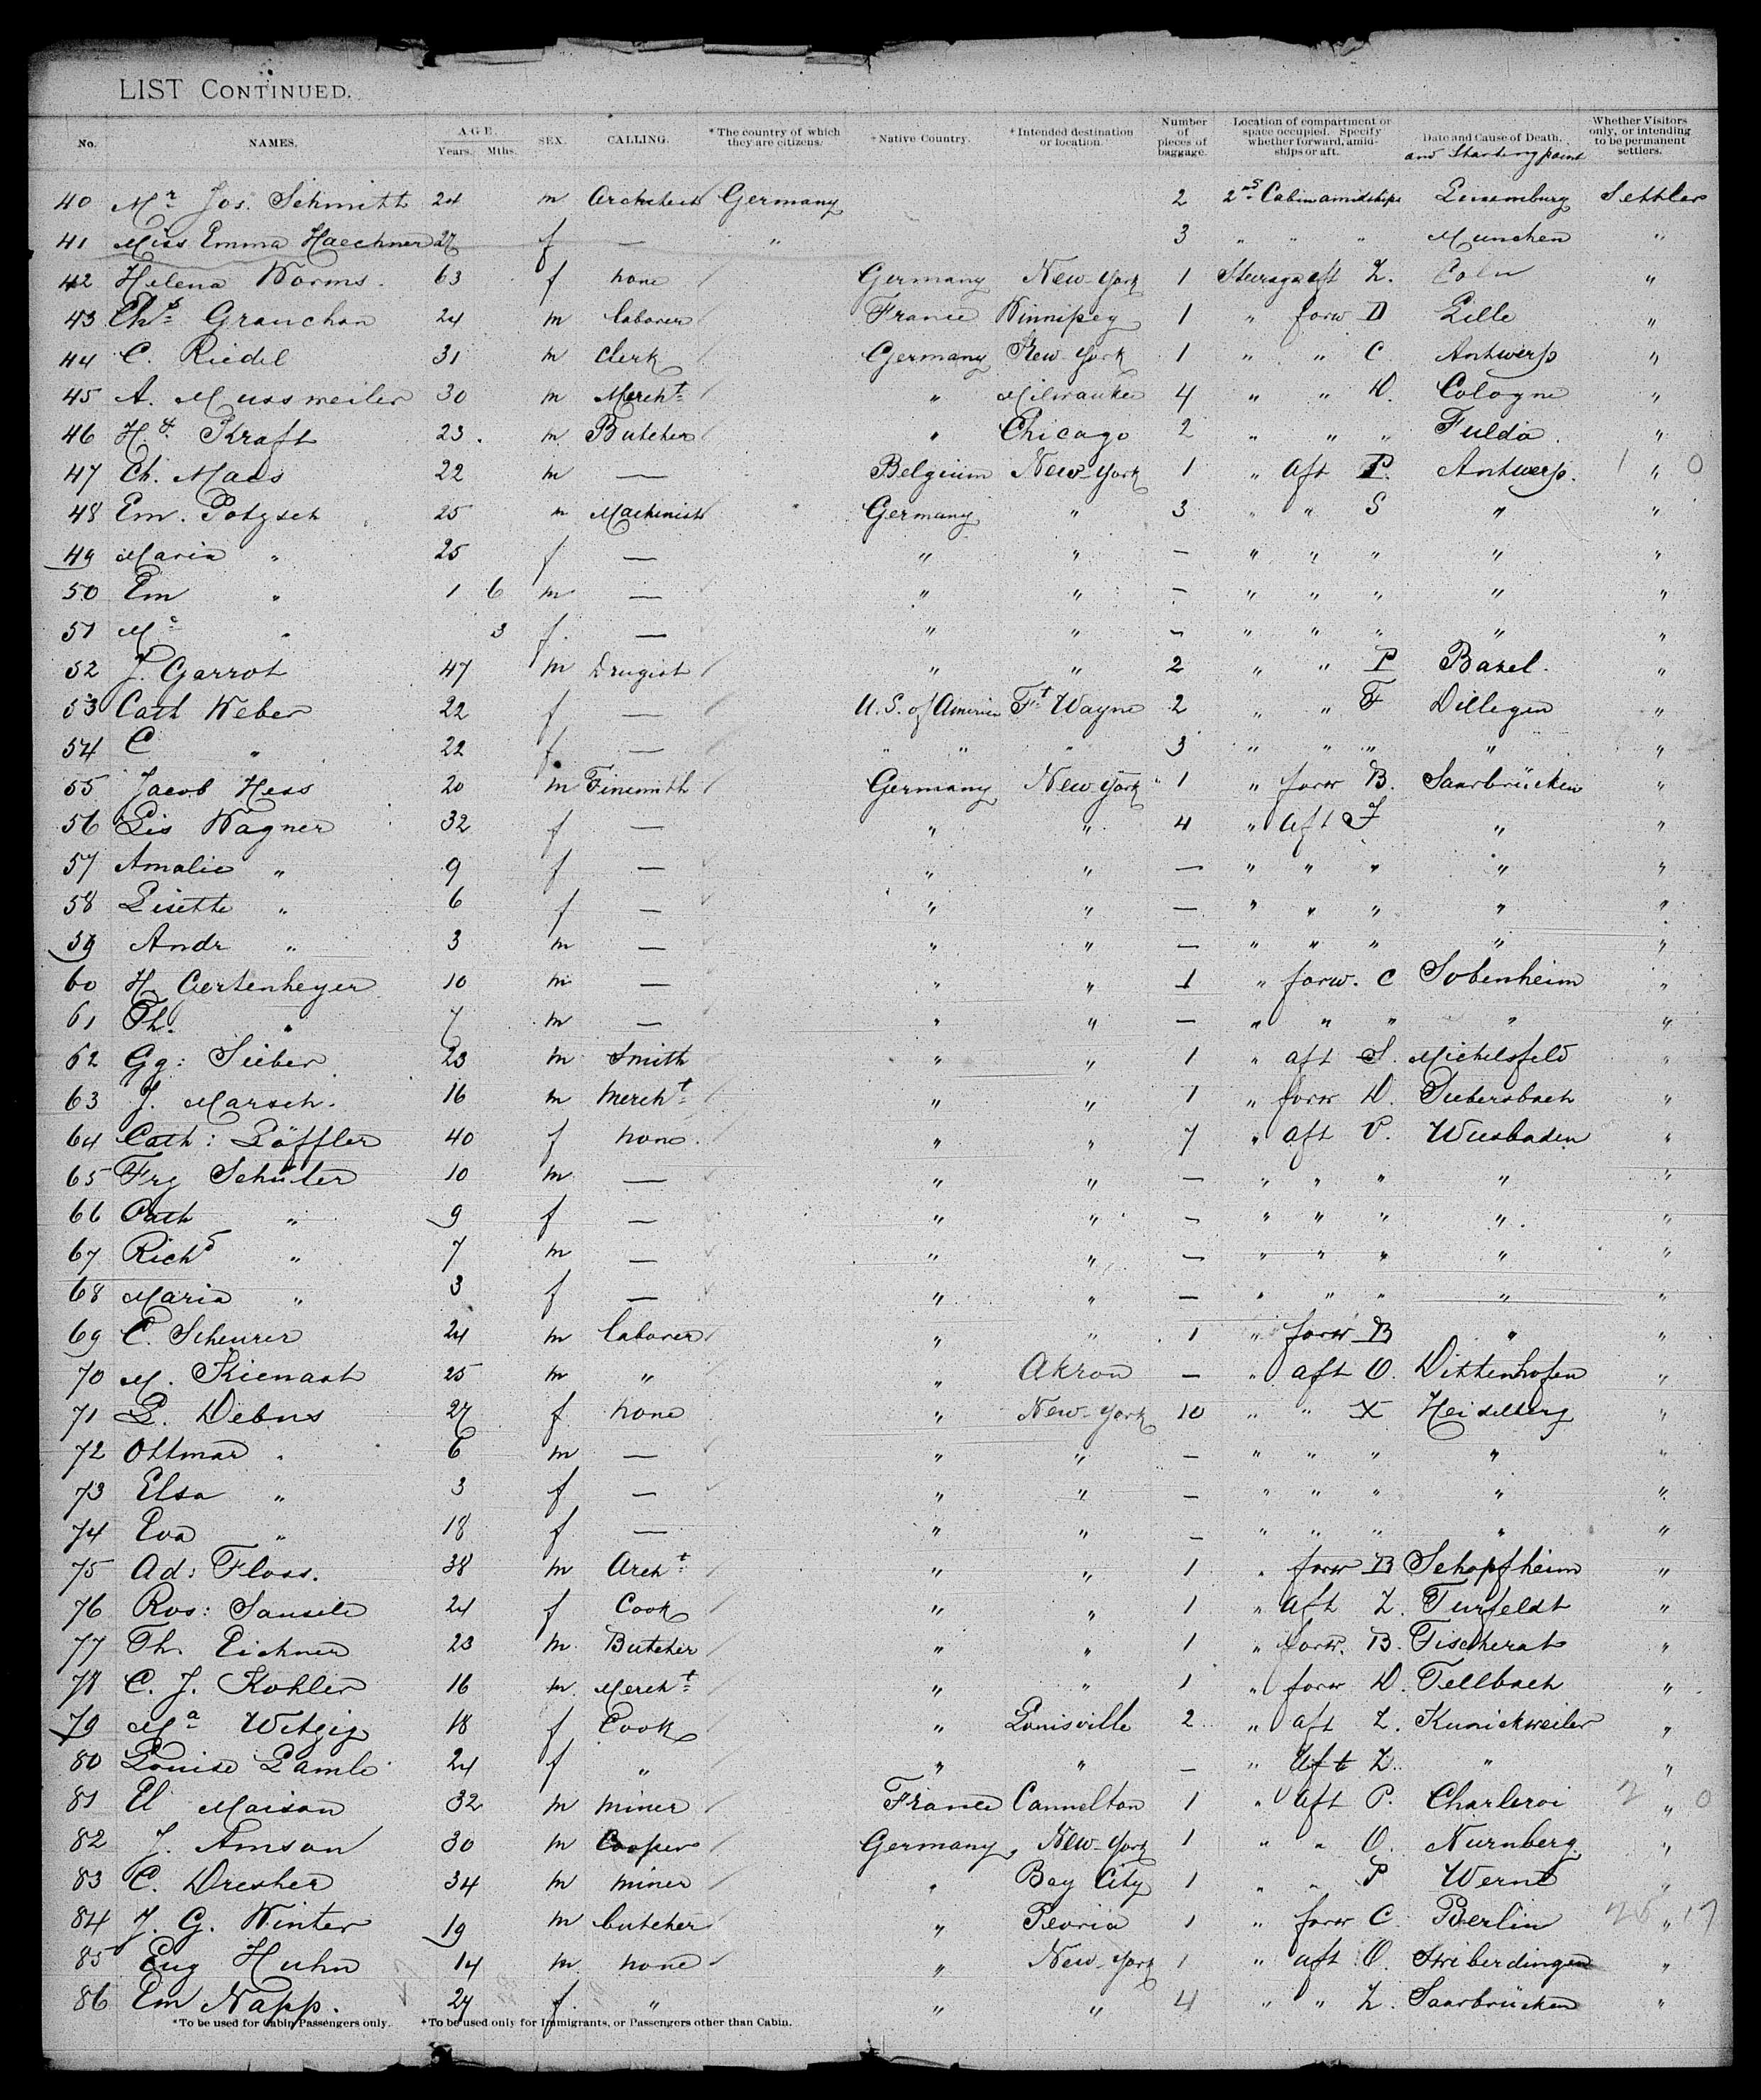 LIST CONTINUED.
No. NAMES. AGE. Years. Mths. SEX. CALLING. *The country of which they are citizens. +Native Country. +Intended destination or location. Number of pieces of baggage. Location of compartment or space occupied. Specify whether forward, amidships or aft. Date and Cause of Death. and Starting point Whether Visitors only, or intending to be permanent settlers.
40 Mr Jos. Schmitt 24 m Architect Germany 2 2nd Cabin amidships Luxemburg Settler
41 Miss Emma Haechner 27 f — " 3 " " " Munchen "
42 Helena Worms. 63 f none Germany New-York 1 Steerage aft Z. Coln "
43 Chs Grauchon 24 m laborer France Winnipeg 1 " forw D Lille "
44 C. Riedel 31 m clerk Germany New-York 1 " " C Antwerp "
45 A. Mussweiler 30 m Mercht " Milwaukee 4 " " D. Cologne "
46 Kraft 23. m Butcher " Chicago 2 " " " Fulda. "
47 Ch. Maes 22 m — Belgium New-York 1 " aft P. Antwerp. 1 " 0
48 Em. Potzsch 25 m Machinist Germany " 3 " " S " "
49 Maria " 25 f — " " — " " " " "
50 Em " 1 6 m — " " — " " " " "
51 Ma " 3 f. — " " — " " " " "
52 J. Garrot 47 m Drugist " " 2 " " P Basel. "
53 Cath Weber 22 f — U.S. of America Ft Wayne 2 " " F Dillegen "
54 C " 22 f — " " " 3 " " " " "
55 Jacob Hess 20 m Tinsmith Germany New York 1 " forw B. Saarbrücken "
56 Lis Wagner 32 f — " " 4 " aft F " "
57 Amalie " 9 f — " " — " " " " "
58 Lisette " 6 f — " " — " " " " "
59 Andr " 3 m — " " — " " " " "
60 H. Gertenheyer 10 m — " " 1 " forw. C Sobenheim "
61 Th. " 7 m — " " — " " " " "
62 Gg: Sieber 23 m Smith " " 1 " aft S. Michelsfeld "
63 J. Marsch. 16 m mercht " " 1 " forw D. Subersbach "
64 Cath: Löffler 40 f none. " " 7 " aft V. Wiesbaden "
65 Frz Schuler 10 m — " " — " " " " "
66 Cath " 9 f — " " — " " " " "
67 Richd " 7 m — " " — " " " " "
68 Maria " 3 f — " " — " " " " "
69 C. Scheurer 24 m laborer " " 1 " forw B " "
70 M. Kienast 25 m " " Akron — " aft O. Dittenhofen "
71 L. Debus 27 f none " New-York 10 " " X Heidelberg "
72 Ottmar " 6 m — " " — " " " " "
73 Elsa " 3 f — " " — " " " " "
74 Eva " 18 f — " " — " " " " "
75 Ad: Floss. 38 m Archt " " 1 " forw B Schopfheim "
76 Ros: 24 f Cook " " 1 " aft Z. Turfeldt "
77 Th. Eichner 23 m. Butcher " " 1 " forw. B. "
78 C. J. Kohler 16 m. Mercht " " 1 " forw D. Fellbach "
79 Ma Witzig 18 f Cook " Louisville 2 " aft Z. Kunickweiler "
80 Louise Lamle 24 f " " " — " aft Z. " "
81 El Maison 32 m miner France Cannelton 1 " aft P. Charleroi 2 " 0
82 J. Amson 30 m Cooper Germany New-York 1 " " O. Nurnberg. "
83 C. Dresher 34 m miner " Bay City 1 " " P Werne "
84 J. G. Winter 19 m butcher " Peoria 1 " forw C. Berlin "
85 Eug Huhn 14 m. none " New-York 1 " aft O. "
86 Em Napp. 27 f. " " " 4 " " Z. Saarbrücken "
*To be used for Cabin Passengers only. +To be used only for Immigrants, or Passengers other than Cabin.